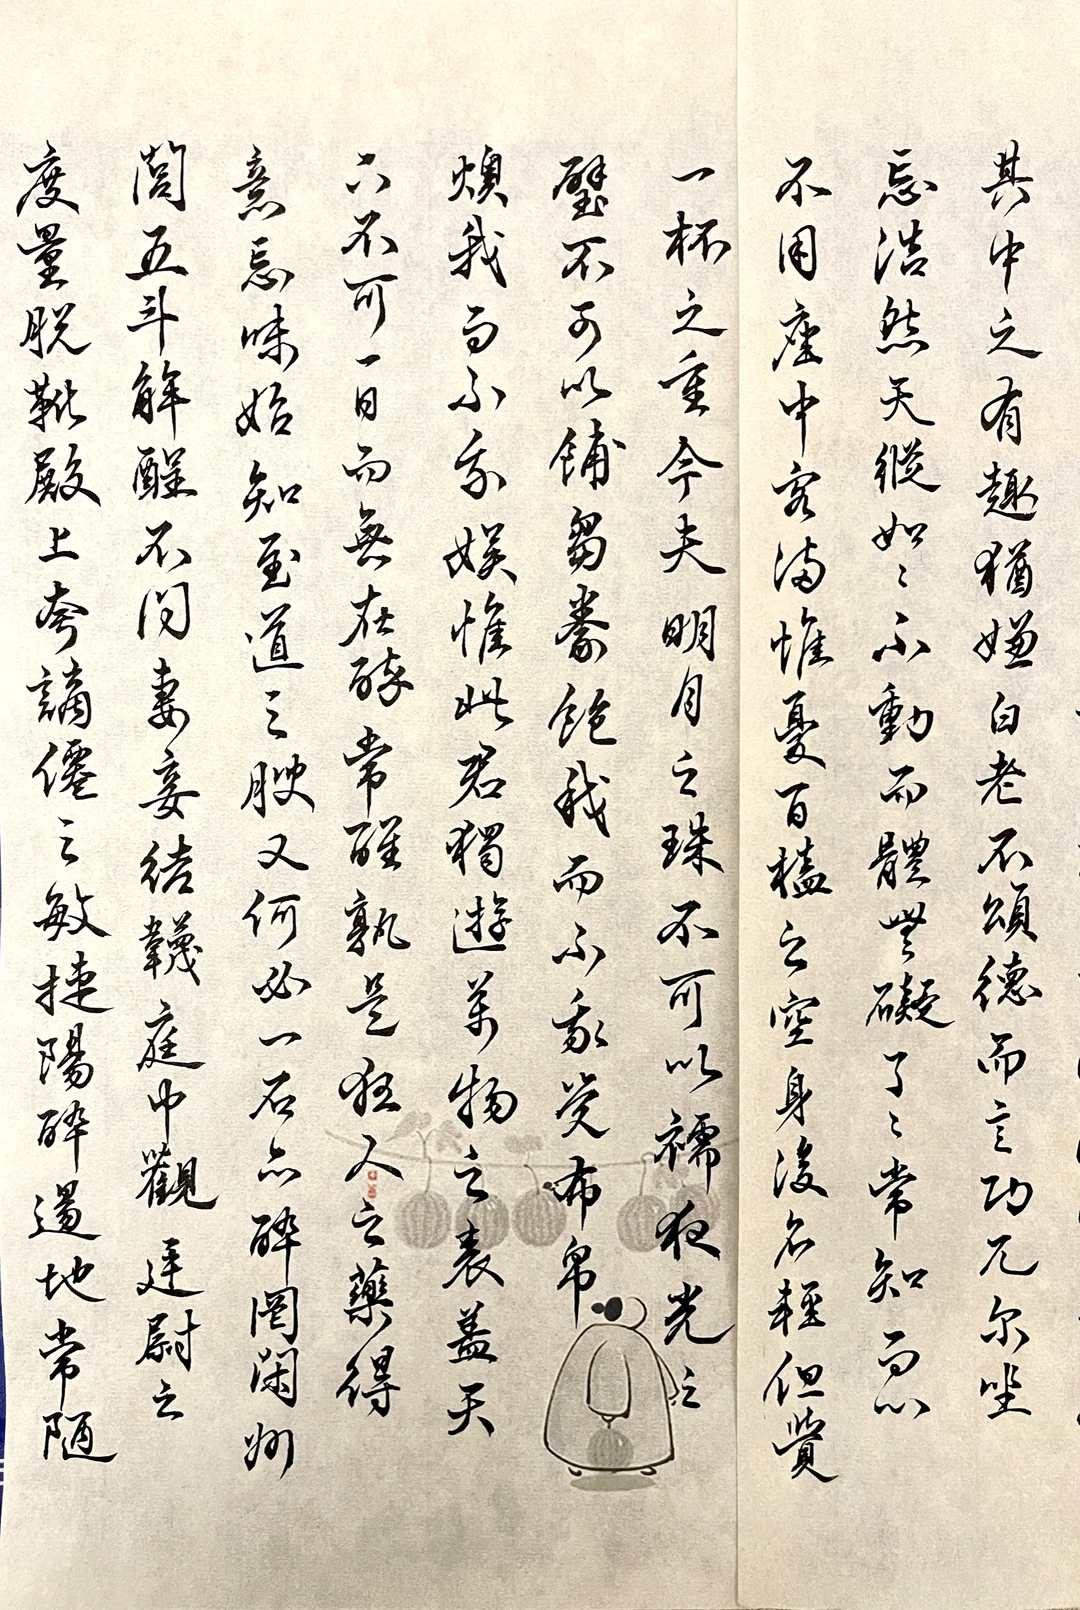 其中之有趣猶嫌白老不頌德而言功兀尔坐
忘浩然天縱如〻不動而體無礙了〻常知而心
不用座中客滿惟憂百榼之空身後名輕但覺
一杯之重今夫明月之珠不可以襦夜光之
璧不可以餔芻豢飽我而不我覺布帛
燠我而不我娛惟此君獨遊萬物之表蓋天
下不可一日而無在醉常醒孰是狂人之藥得
意忘味始知至道之腴又何必一石亦醉罔閑州
閭五斗解酲不問妻妾結韈庭中觀廷尉之
度量脫靴殿上夸謫僊之敏捷陽醉逷地常陋